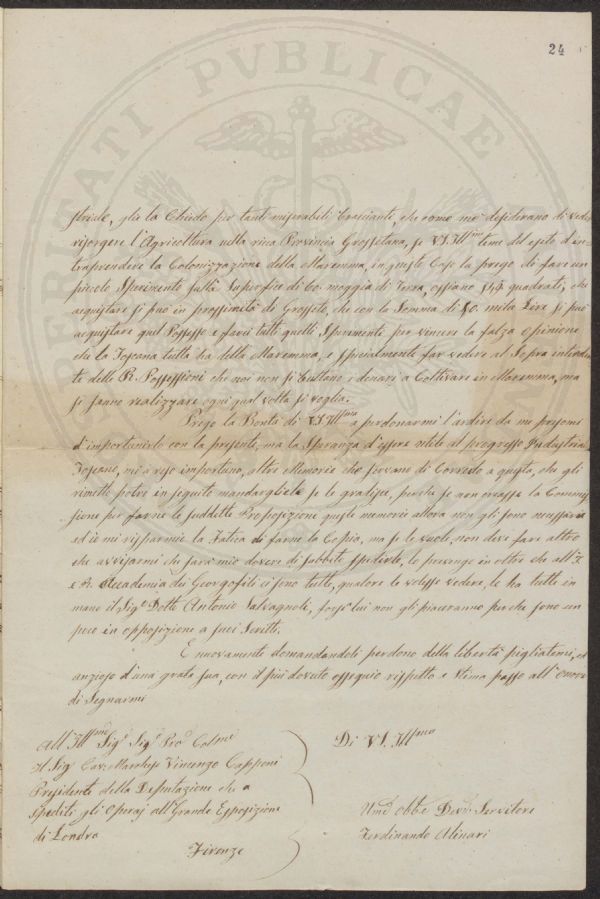 24
PROSPERITATI PVBLICAE
striale, già la Chiedo per tanti miserabili braccianti, che come me desiderano di veder
risorgere l'Agricoltura nella ricca Provincia Grossetana, se VS. Illma teme del esito d'in=
traprendere la Colonizzazione della Maremma, in questo Caso la prego di fare un
piccolo Sperimento sulla Superfice di 60 moggia di Terra, ossiano quadrati, che
acquistare si può in prossimità di Grosseto, che con la Somma di 80. mila Lire si può
acquistare quel Possesso e farci tutti quelli Sperimenti per vincere la falza opinione
che la Toscana tutta ha della Maremma, e specialmente far vedere al Sopra intenden
te delle R. Possessioni che noi non si buttano i denari a Coltivare in Maremma, ma
si fanno realizzare ogni qual volta si voglia.
Prego la Bontà di VS. Illma a perdonarmi l'ardire da me presomi
d'importunirlo con la presente, ma la Speranza d'essere utile al progresso Industria
Toscano, mi à reso importuno, altre Memorie che servano di Corredo a questa, che gli
rimetto potrò in seguito mandargliele se le gradisce, perché se non creasse la Commis
sione per farne le suddette Proposizioni queste memorie allora non gli sono necessarie
ed io mi risparmio la Fatica di farne la Copia, ma se le vuole, non deve fare altro
che avvisarmi che sarà mio dovere di subbito spedirle, lo prevengo in oltre che all' I.
e R. Accademia dei Georgofili ci sono tutte, qualora le volesse vedere, le ha tutte in
mano il Sigr. Dotte Antonio Salvagnoli, forse lui non gli piaceranno perche sono un
poco in opposizione a suoi Scritti.
E nuovamente domandandoli perdono della libertà pigliatami, ed
anzioso d'una grata sua, con il più dovuto ossequio rispetto e stima passo all'Onore
di Segnarmi
All' Illmo Sigr. Sigr. Pro. Colmo
Il Sigr. Cav. Marchese Vincenzo Capponi
Presidente della Deputazione che a
spediti gli Operaj all' Grande Esposizione
di Londra
Firenze
Di VS. Illma
Umo obbo Devo Servitore
Ferdinando Alinari